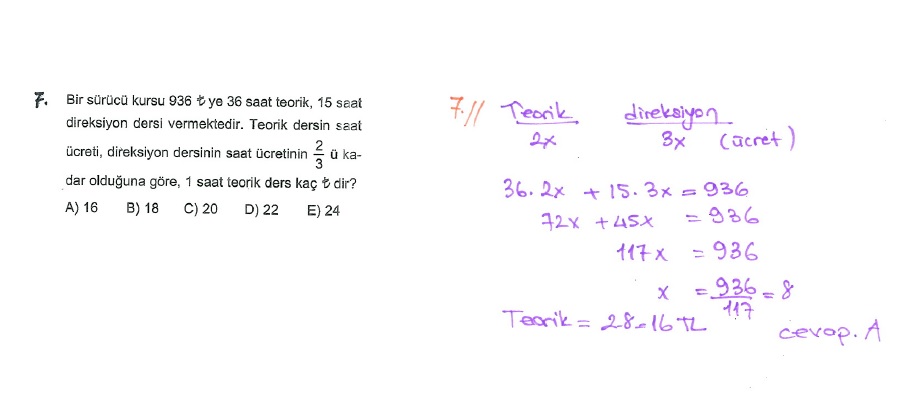 7. Bir sürücü kursu 936 ₺ ye 36 saat teorik, 15 saat
direksiyon dersi vermektedir. Teorik dersin saat
ücreti, direksiyon dersinin saat ücretinin 2/3 ü ka-
dar olduğuna göre, 1 saat teorik ders kaç ₺ dir?
A) 16 B) 18 C) 20 D) 22 E) 24
7.// Teorik direksiyon
2x 3x (ücret)
36.2x + 15.3x = 936
72x + 45x = 936
117x = 936
x = 936/117 = 8
Teorik = 2.8=16 TL
cevap. A